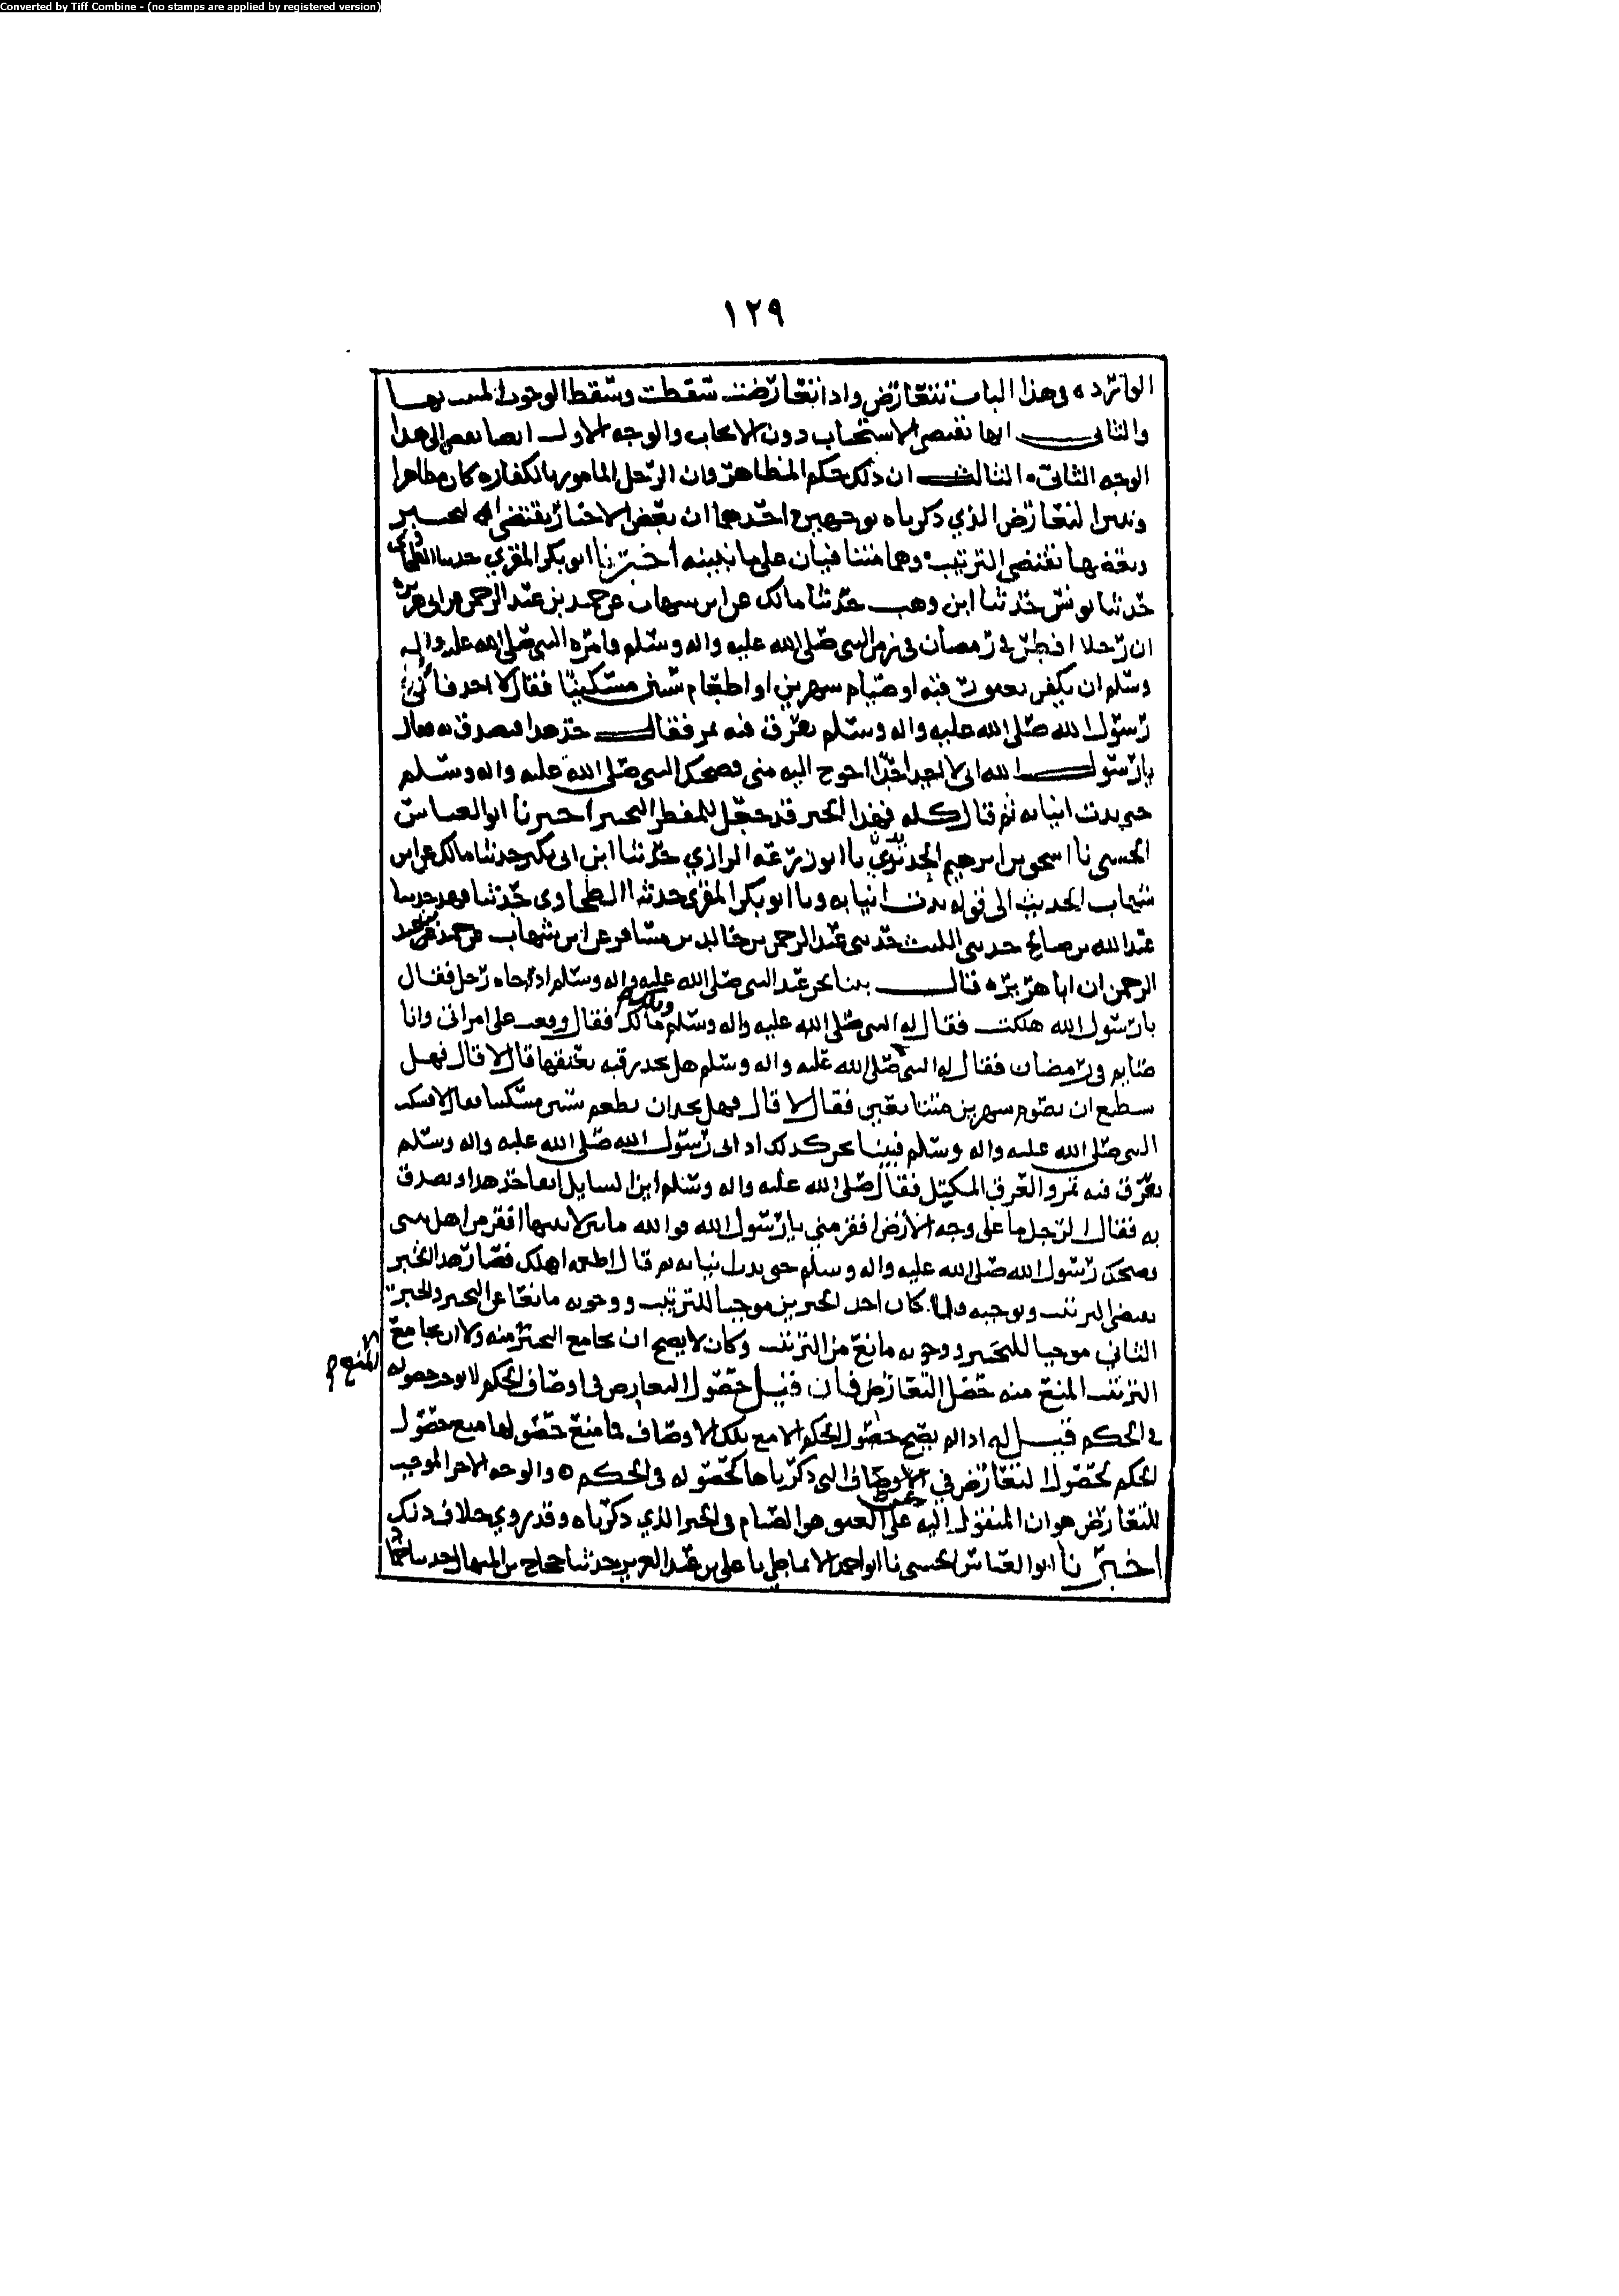 Converted by Tiff Combine - (no stamps are applied by registered version)
١٢٩
الواردة في هذا الباب تتعارض واذا تعارضت سقطت وسقط الوجوب المتعلق بها
والثاني انها تقتضي الاستحباب دون الايجاب والوجه الاول ايضا يفضي الى هذا
الوجه الثاني والثالث ان ذلك حكم المظاهر وان الرجل المامور بالكفاره كان مظاهرا
التعارض الذي ذكرناه بوجهين احدهما ان بعض الاخبار يقتضي التخيير
وبعضها يقتضي الترتيب وهما متنافيان على ما نبينه اخبرنا ابو بكر المقري حدثنا الطحاوي
حدثنا يونس حدثنا ابن وهب حدثنا مالك عن ابن شهاب عن حميد بن عبد الرحمن عن ابي هريره
ان رجلا افطر في رمضان في زمن النبي صلى الله عليه واله وسلم فامره النبي صلى الله عليه واله
وسلم ان يكفر بعتق رقبه او صيام شهرين او اطعام ستين مسكينا فقال لا اجد فاتي
رسول الله صلى الله عليه واله وسلم بعرق فيه تمر فقال خذ هذا فتصدق به فقال
يا رسول الله اني لا اجد احدا احوج اليه مني فضحك النبي صلى الله عليه واله وسلم
حتى بدت انيابه ثم قال كله فهذا الخبر قد جعل للمفطر التخيير اخبرنا ابو العباس
الحسني نا اسحق بن ابرهيم الحديدي نا ابو زرعه الرازي حدثنا ابن ابي بكير حدثنا مالك عن ابن
شهاب الحديث الى قوله بدت انيابه ونا ابو بكر المقري حدثنا الطحاوي حدثنا فهد حدثنا
عبد الله بن صالح حدثني الليث حدثني عبد الرحمن بن خالد بن مسافر عن ابن شهاب عن حميد بن عبد
الرحمن ان ابا هريره قال بينا نحن عند النبي صلى الله عليه واله وسلم اذ جاه رجل فقال
يا رسول الله هلكت فقال له النبي صلى الله عليه واله وسلم ويلك مالك فقال وقعت على امراتي وانا
صايم في رمضان فقال له النبي صلى الله عليه واله وسلم هل تجد رقبه تعتقها قال لا قال فهل
تستطيع ان تصوم شهرين متتابعين فقال لا قال فهل تجد ان تطعم ستين مسكينا قال لا فسكت
النبي صلى الله عليه واله وسلم فبينا نحن كذلك اذ اتى رسول الله صلى الله عليه واله وسلم
بعرق فيه تمر والعرق المكيتل فقال صلى الله عليه واله وسلم اين السايل انفا خذ هذا وتصدق
به فقال الرجل ما على وجه الارض افقر مني يا رسول الله فوالله ما بين لابتيها افقر من اهل بيتي
فضحك رسول الله صلى الله عليه واله وسلم حتى بدت انيابه ثم قال اطعمه اهلك فصار هذا الخبر
يقتضي الترتيب ويوجبه فلما كان احد الخبرين موجبا للترتيب ووجوبه مانعا عن التخيير والخبر
الثاني موجبا للتخيير ووجوبه مانع من الترتيب وكان لا يصح ان يجامع التخيير منه ولا ان يجامع
المنع
الترتيب المنع منه حصل التعارض فان قيل حصول التعارض في اوصاف الحكم لا يوجب حصوله
في الحكم قيل له اذا لم يصح حصول الحكم الا مع تلك الاوصاف فما منع حصولها منع حصول
الحكم فحصول التعارض في الاوصاف التي ذكرناها كحصوله في الحكم ه والوجه الاخر الموجب
للتعارض هو ان المنقول اليه عن العتق هو الصيام في الخبر الذي ذكرناه وقد روي خلاف ذلك
اخبرنا ابو العباس الحسني نا ابو احمد الانماطي نا علي بن عبد العزيز حدثنا حجاج بن المنهال حدثنا حماد